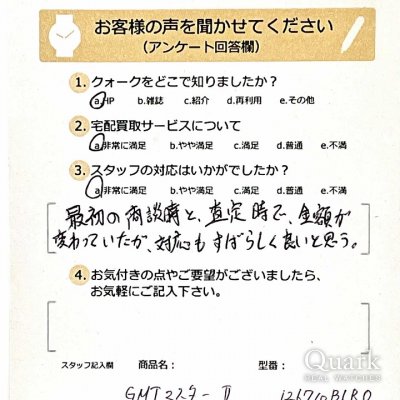 お客様の声を聞かせてください
（アンケート回答欄）
1. クォークをどこで知りましたか？
a.HP b.雑誌 c.紹介 d.再利用 e.その他
2. 宅配買取サービスについて
a.非常に満足 b.やや満足 c.満足 d.普通 e.不満
3. スタッフの対応はいかがでしたか？
a.非常に満足 b.やや満足 c.満足 d.普通 e.不満
最初の商談時と、査定時で、金額が
変わっていたが、対応もすばらしく良いと思う。
4. お気付きの点やご要望がございましたら、
お気軽にご記入下さい。
スタッフ記入欄 商品名： 型番：
GMTマスターⅡ 126710BLRO
Quark
REAL WATCHES